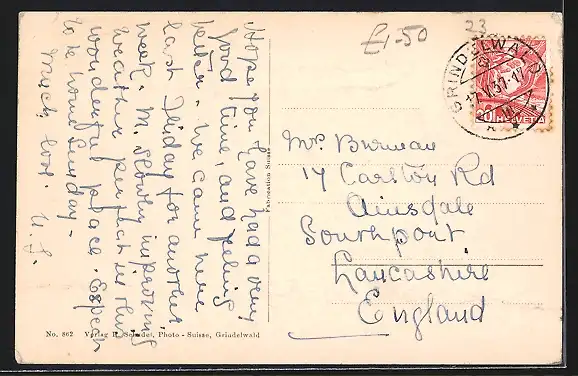 Hope you have had a very
good time, and feeling
better. We came here
last Friday for another
week. M. slowly improving
weather perfect in this
wonderful place. Expect
to be home Sunday -
Much love. U. J.
Fabrication Suisse
£1-50
23
GRINDELWALD
17
37-17
20
HELVETIA
Mrs Burman
17 Carlton Rd
Ainsdale
Southport
Lancashire
England
No. 862 Verlag R. Schudel, Photo - Suisse, Grindelwald